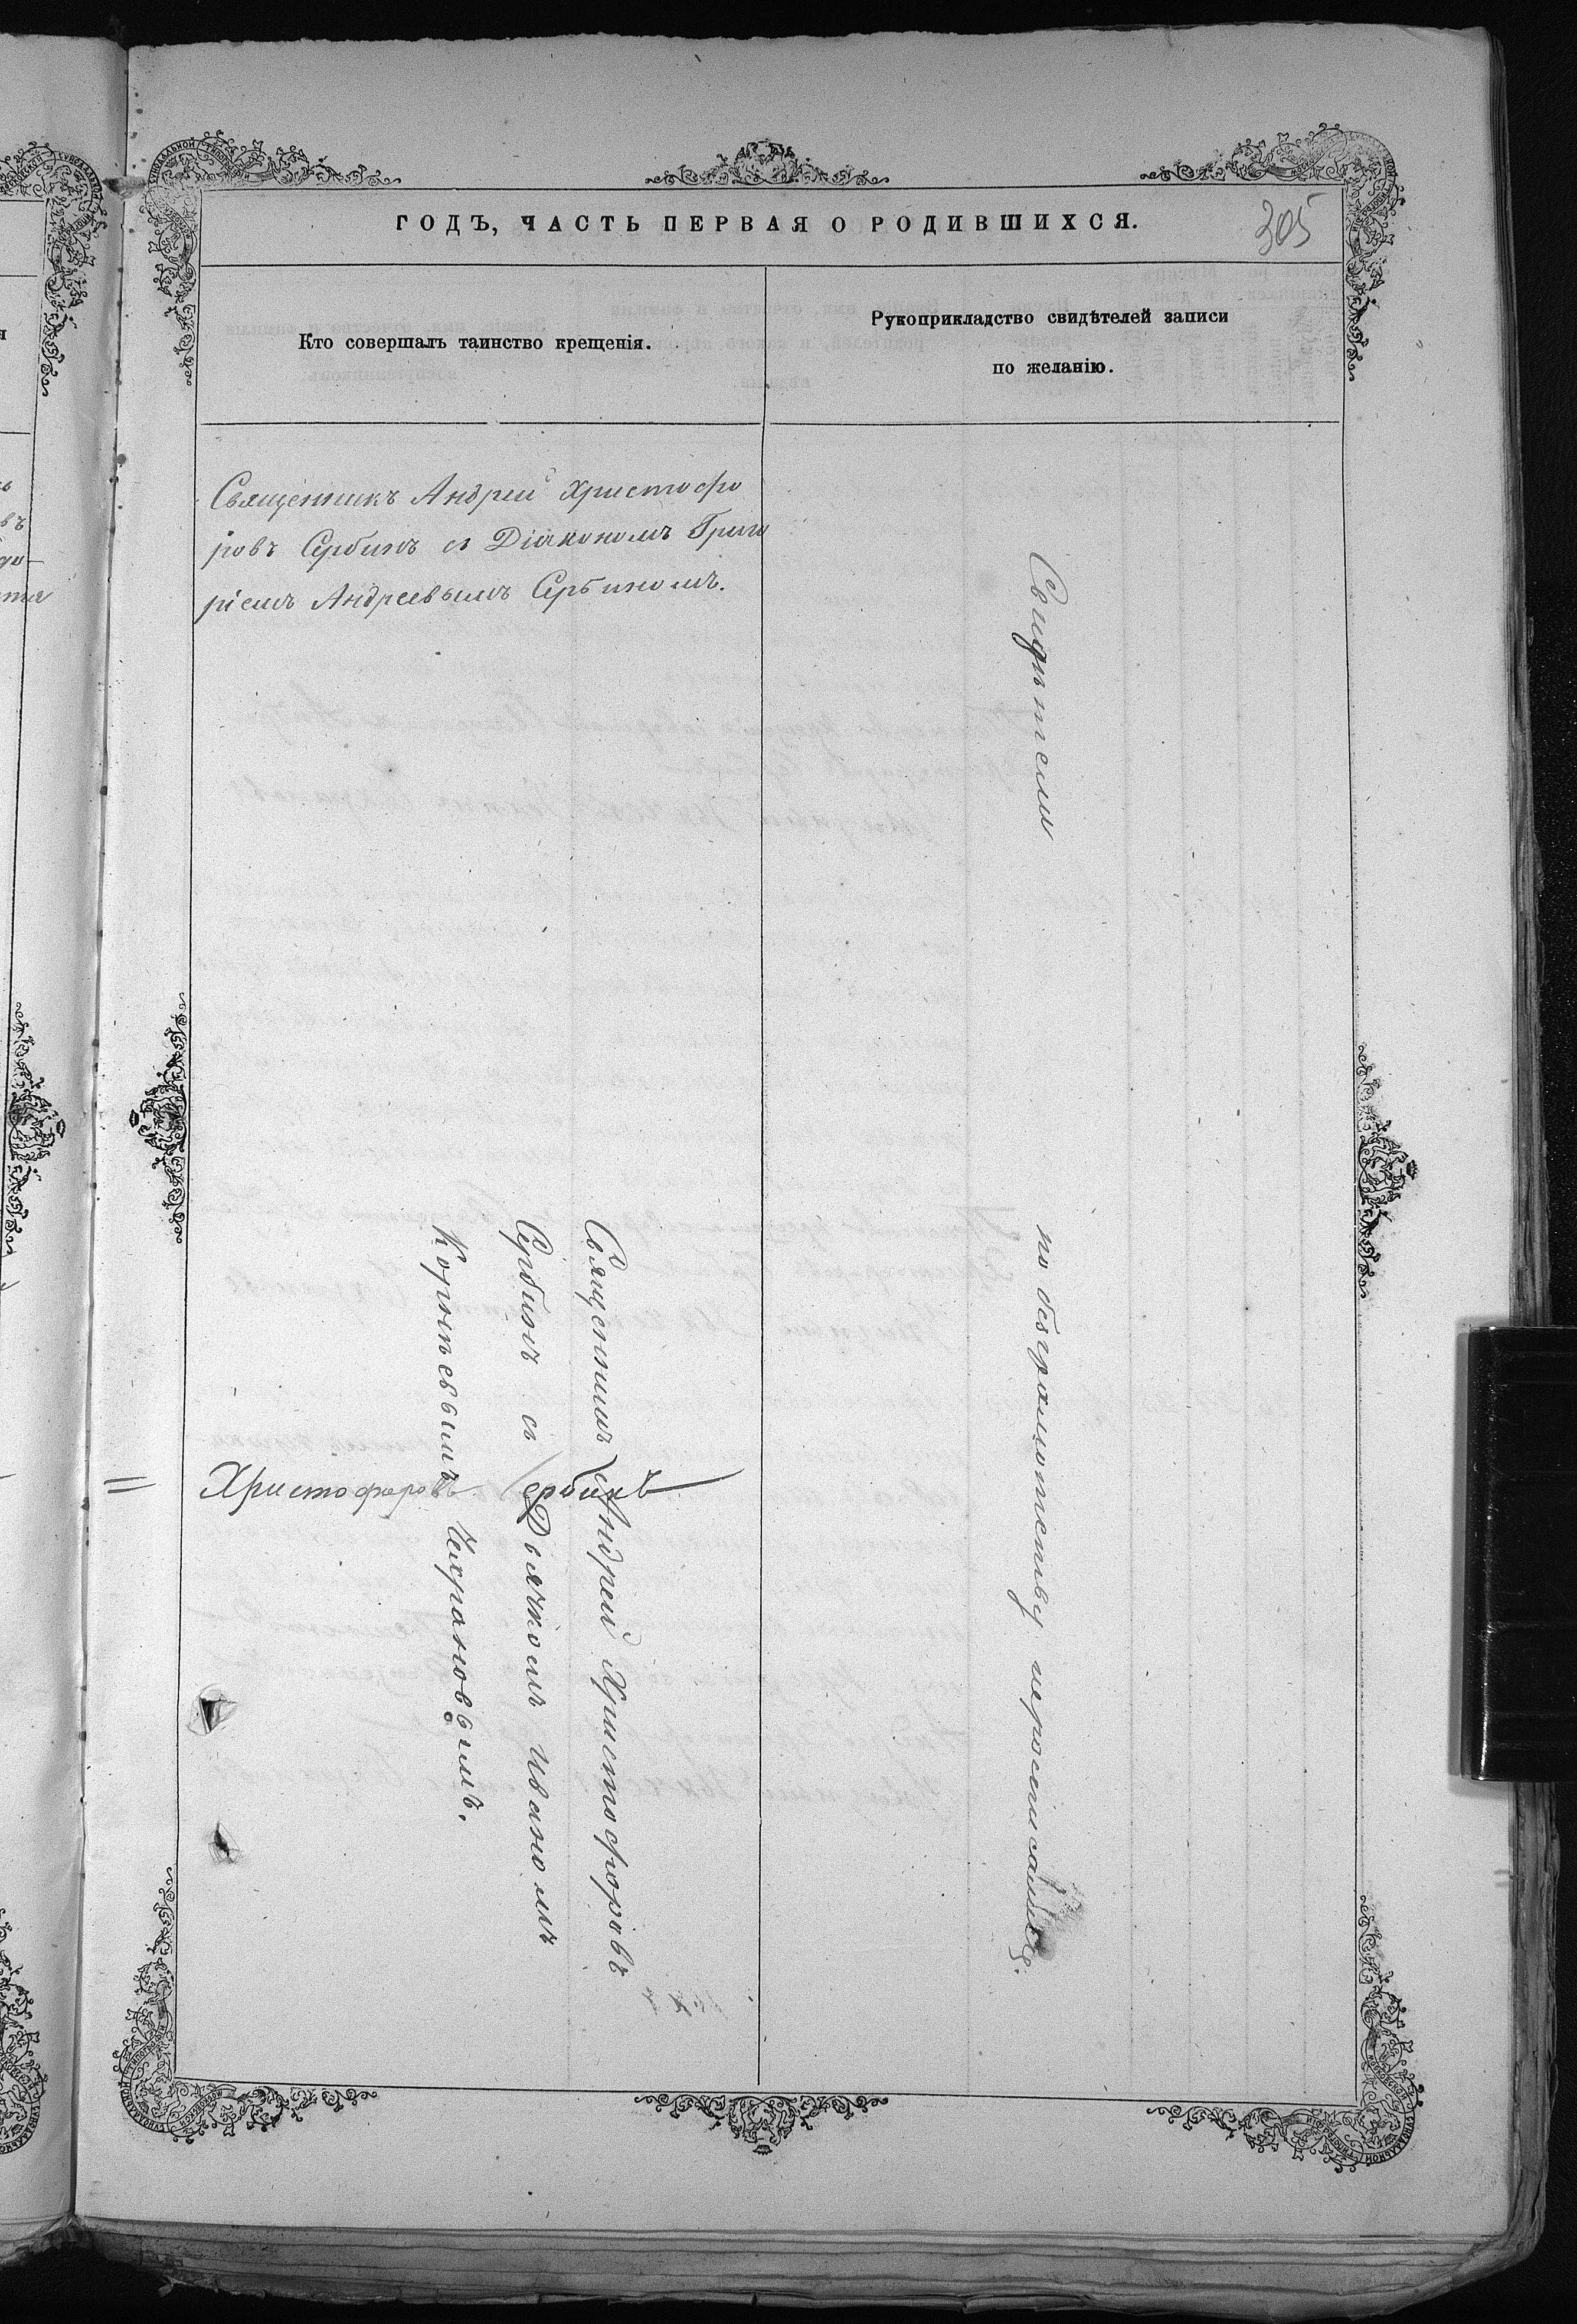 ГОДЪ, ЧАСТЬ ПЕРВАЯ О РОДИВШИХСЯ.
305
Кто совершалъ таинство крещенія.
Рукоприкладство свидѣтелей записи
по желанію.
Священникъ Андрей Христофо
ровъ Сербинъ съ Діакономъ Григо
ріемъ Андреевымъ Сербиномъ.
Свидѣтели
по безграмотству
Священникъ Андрей Христофоровъ
Сербинъ съ Дьячкомъ Иваномъ
Корнѣевымъ
Христофоровъ Сербинъ